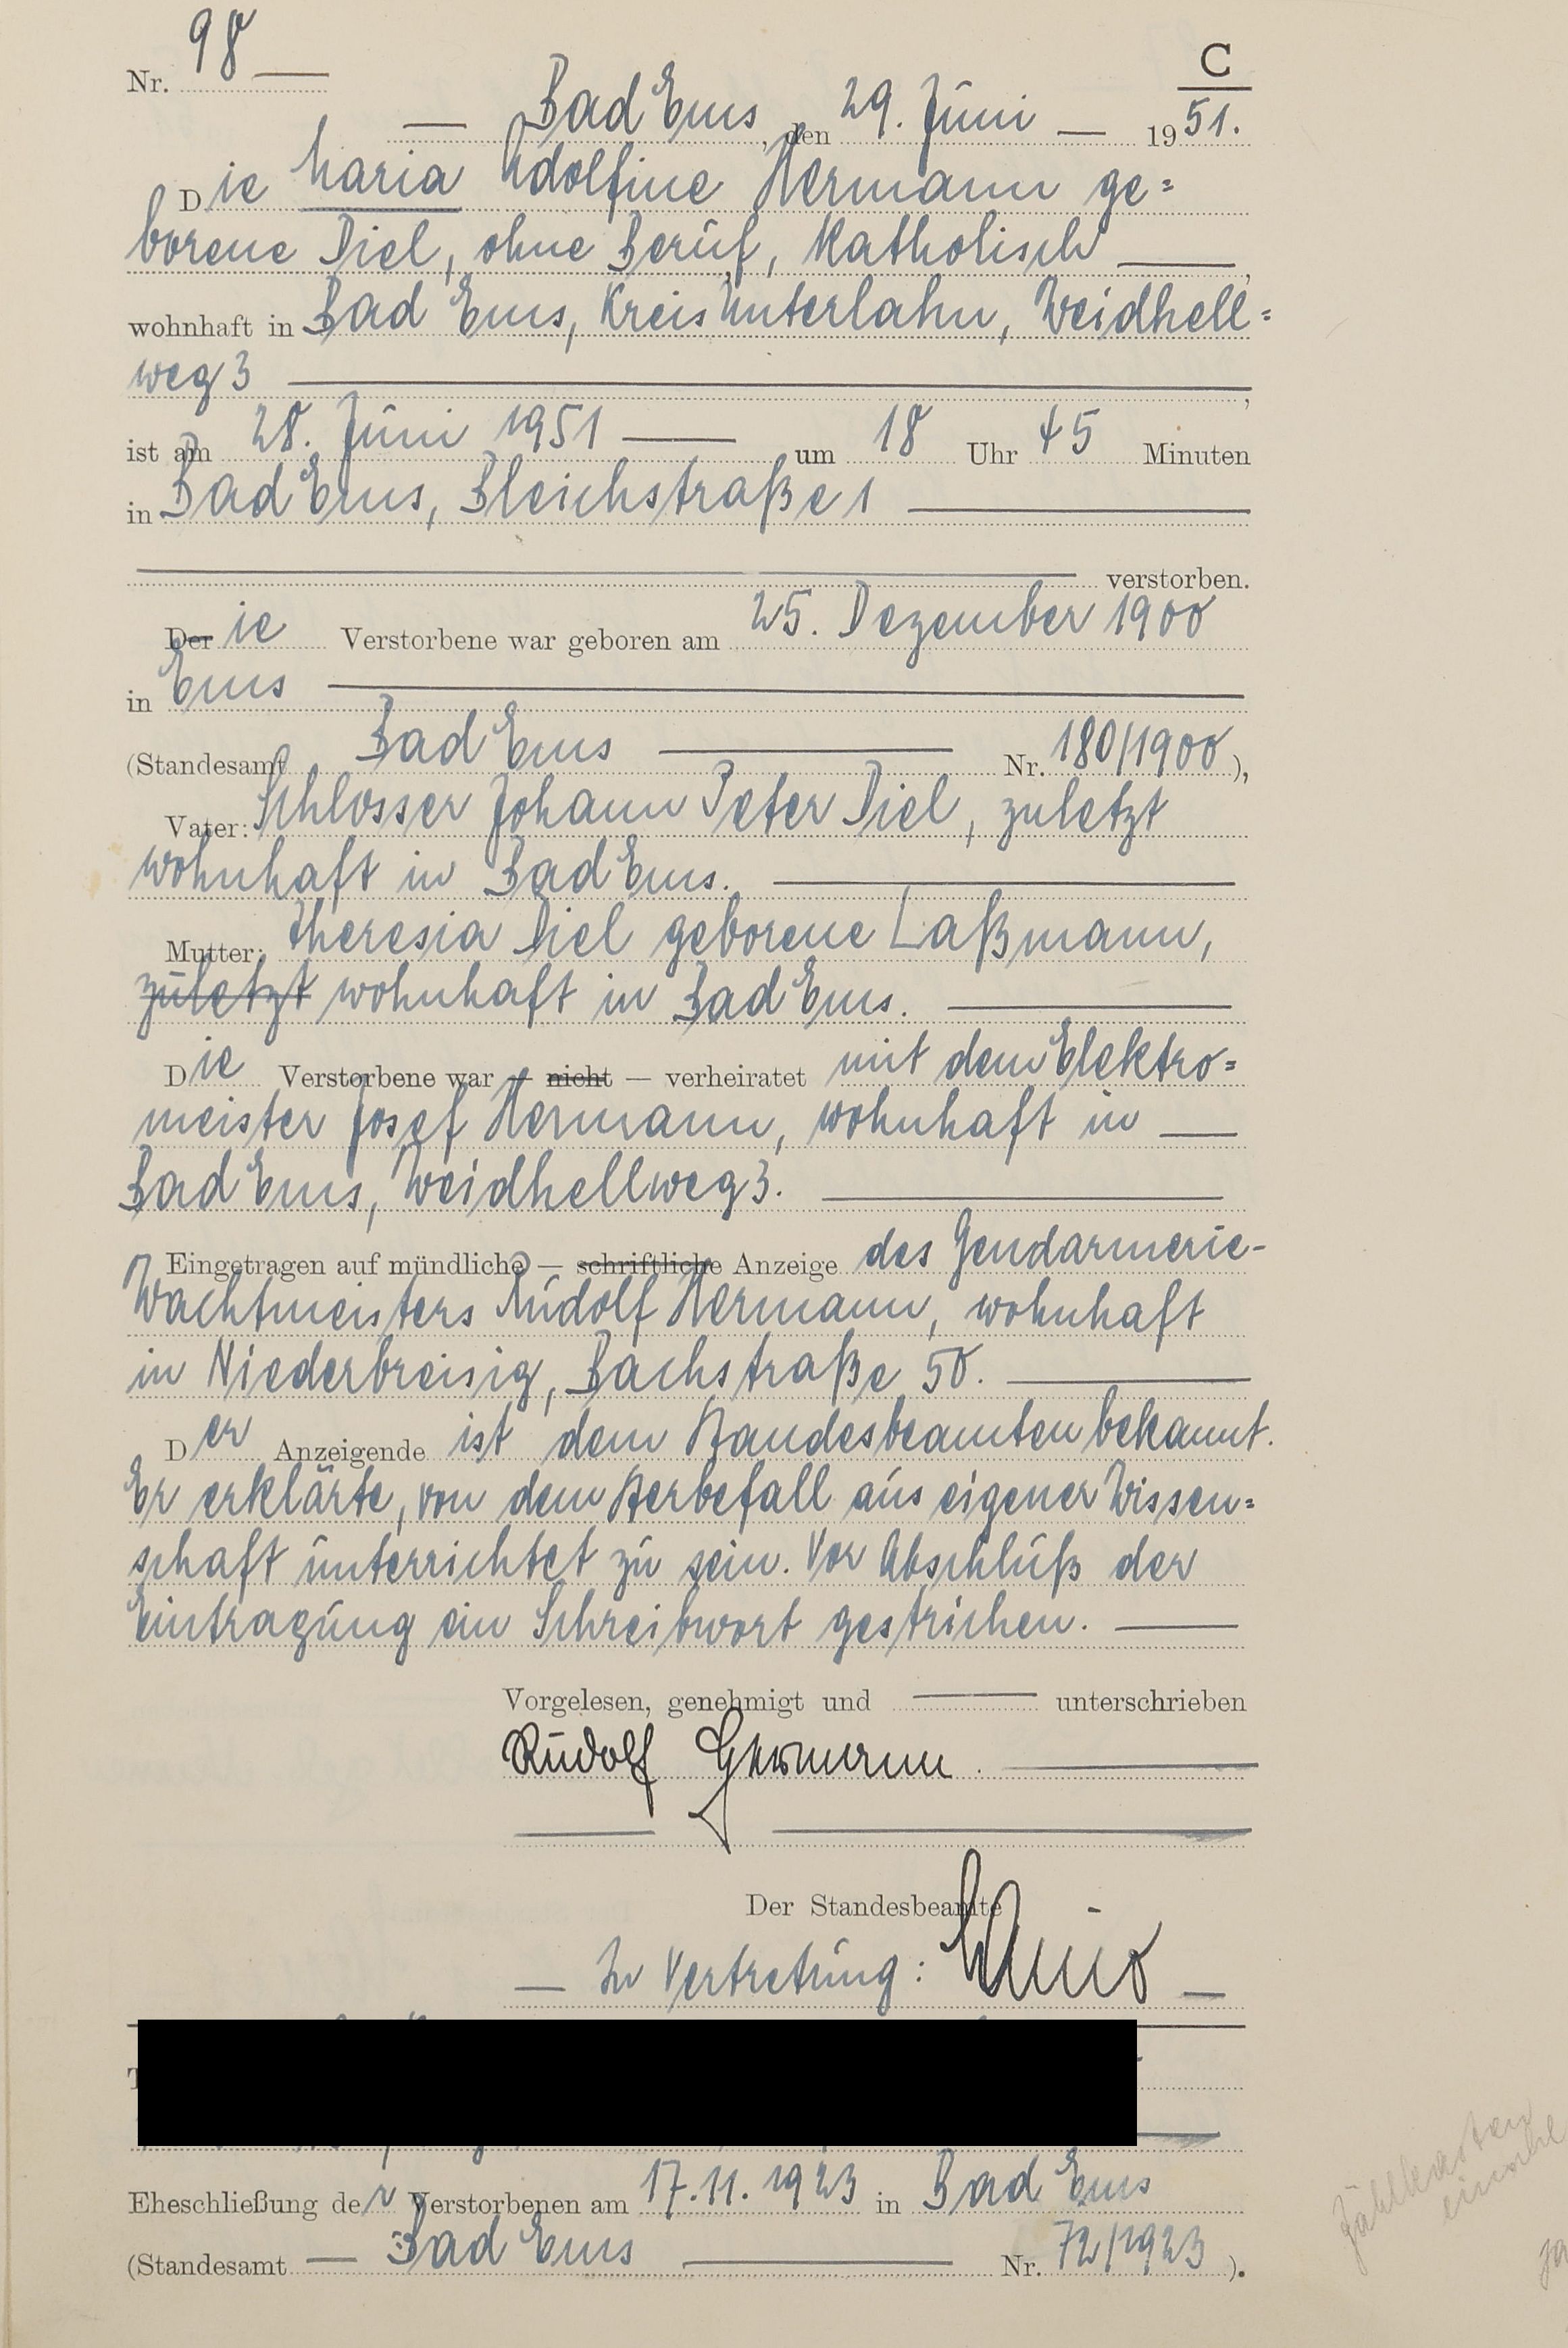 Nr. 98
C
Bad Ems, den 29. Juni 1951.
Die Maria Adolfine Hermann ge=
borene Diel, ohne Beruf, katholisch,
wohnhaft in Bad Ems, Kreis Unterlahn, Weidhell=
weg 3,
ist am 28. Juni 1951 um 18 Uhr 45 Minuten
in Bad Ems, Bleichstraße 1
verstorben.
Der ie Verstorbene war geboren am 25. Dezember 1900
in Ems
(Standesamt Bad Ems Nr. 180/1900),
Vater: Schlosser Johann Peter Diel, zuletzt
wohnhaft in Bad Ems.
Mutter: Theresia Diel geborene Laßmann,
zuletzt wohnhaft in Bad Ems.
Die Verstorbene war — nicht — verheiratet mit dem Elektro=
meister Josef Hermann, wohnhaft in
Bad Ems, Weidhellweg 3.
Eingetragen auf mündliche — schriftliche Anzeige des Gendarmerie-
Wachtmeisters Rudolf Hermann, wohnhaft
in Niederbreisig, Bachstraße 50.
Der Anzeigende ist dem Standesbeamten bekannt.
Er erklärte, von dem Sterbefall aus eigener Wissen=
schaft unterrichtet zu sein. Vor Abschluß der
Eintragung ein Schreibwort gestrichen.
Vorgelesen, genehmigt und unterschrieben
Rudolf Hermann.
Der Standesbeamte
In Vertretung:
Eheschließung der Verstorbenen am 17.11.1923 in Bad Ems
(Standesamt Bad Ems Nr. 72/1923).